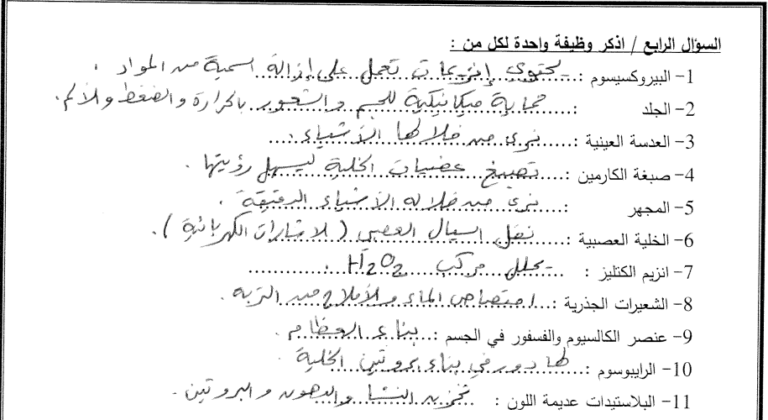 السؤال الرابع / اذكر وظيفة واحدة لكل من :
1- البيروكسيسوم : يحتوي إنزيمات تعمل على إزالة السمية من المواد .
2- الجلد : حماية ميكانيكية للجسم والشعور بالحرارة والضغط والألم .
3- العدسة العينية : نرى من خلالها الأشياء .
4- صبغة الكارمين : تصبغ عضيات الخلية ليسهل رؤيتها .
5- المجهر : نرى من خلاله الأشياء الدقيقة .
6- الخلية العصبية : نقل السيال العصبي ( الاشارات الكهربائية ) .
7- انزيم الكتليز : يحلل مركب H2O2 .
8- الشعيرات الجذرية : امتصاص الماء والأملاح من التربة .
9- عنصر الكالسيوم والفسفور في الجسم : بناء العظام .
10- الرايبوسوم : لها دور في بناء بروتين الخلية
11- البلاستيدات عديمة اللون : تخزين النشا والدهون والبروتين .